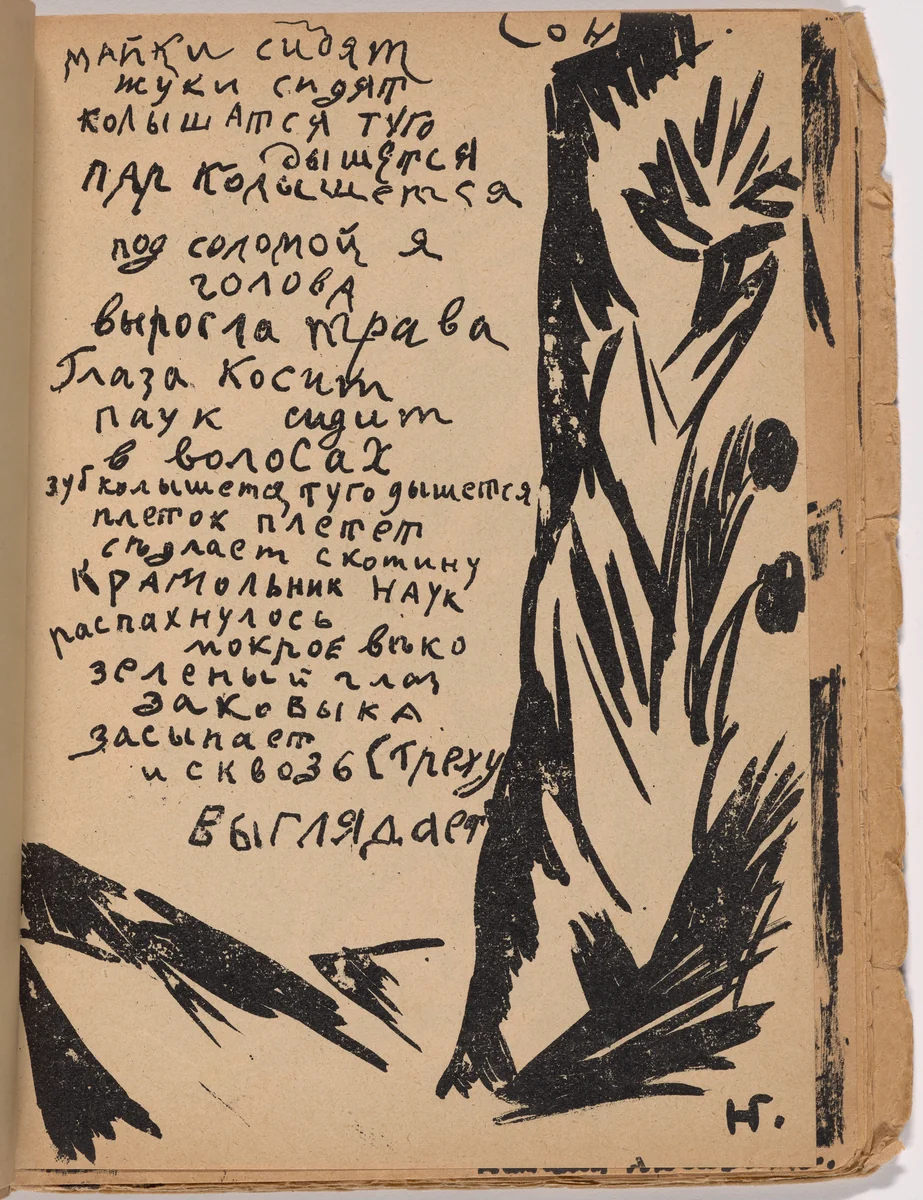 Сон
майки сидят
жуки сидят
колышатся туго
дышется
пар колышется
под соломой я
голова
выросла трава
Глаза косит
паук сидит
в волосах
зуб колышется туго дышется
плеток плетет
съдлает скотину
крамольник наук
распахнулось
мокрое вѣко
зеленый глаз
заковыка
засыпает
и сквозь стреху
выглядает
Н.